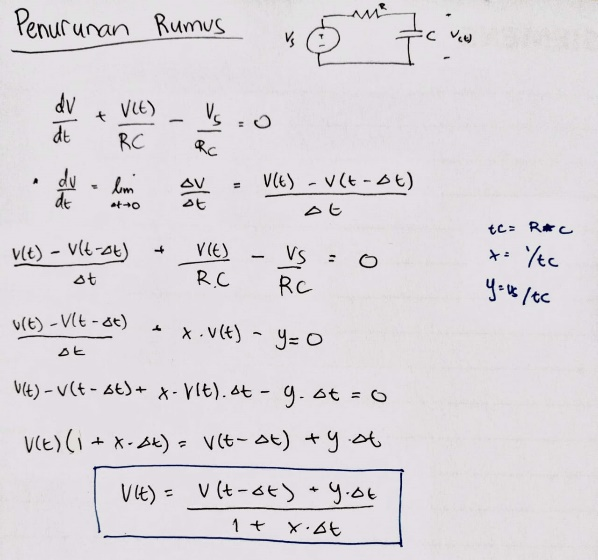 Penurunan Rumus
R
Vs C V(t)
dV/dt + V(t)/RC - Vs/RC = 0
* dv/dt = lim Δt→0 ΔV/Δt = V(t) - V(t - Δt)/Δt
tc = R * C
x = 1/tc
y = Vs/tc
V(t) - V(t-Δt)/Δt + V(t)/R.C - Vs/RC = 0
V(t) - V(t - Δt)/Δt + x . V(t) - y = 0
V(t) - V(t - Δt) + x . V(t) . Δt - y . Δt = 0
V(t) (1 + x . Δt) = V(t - Δt) + y . Δt
V(t) = V(t - Δt) + y . Δt / 1 + x . Δt